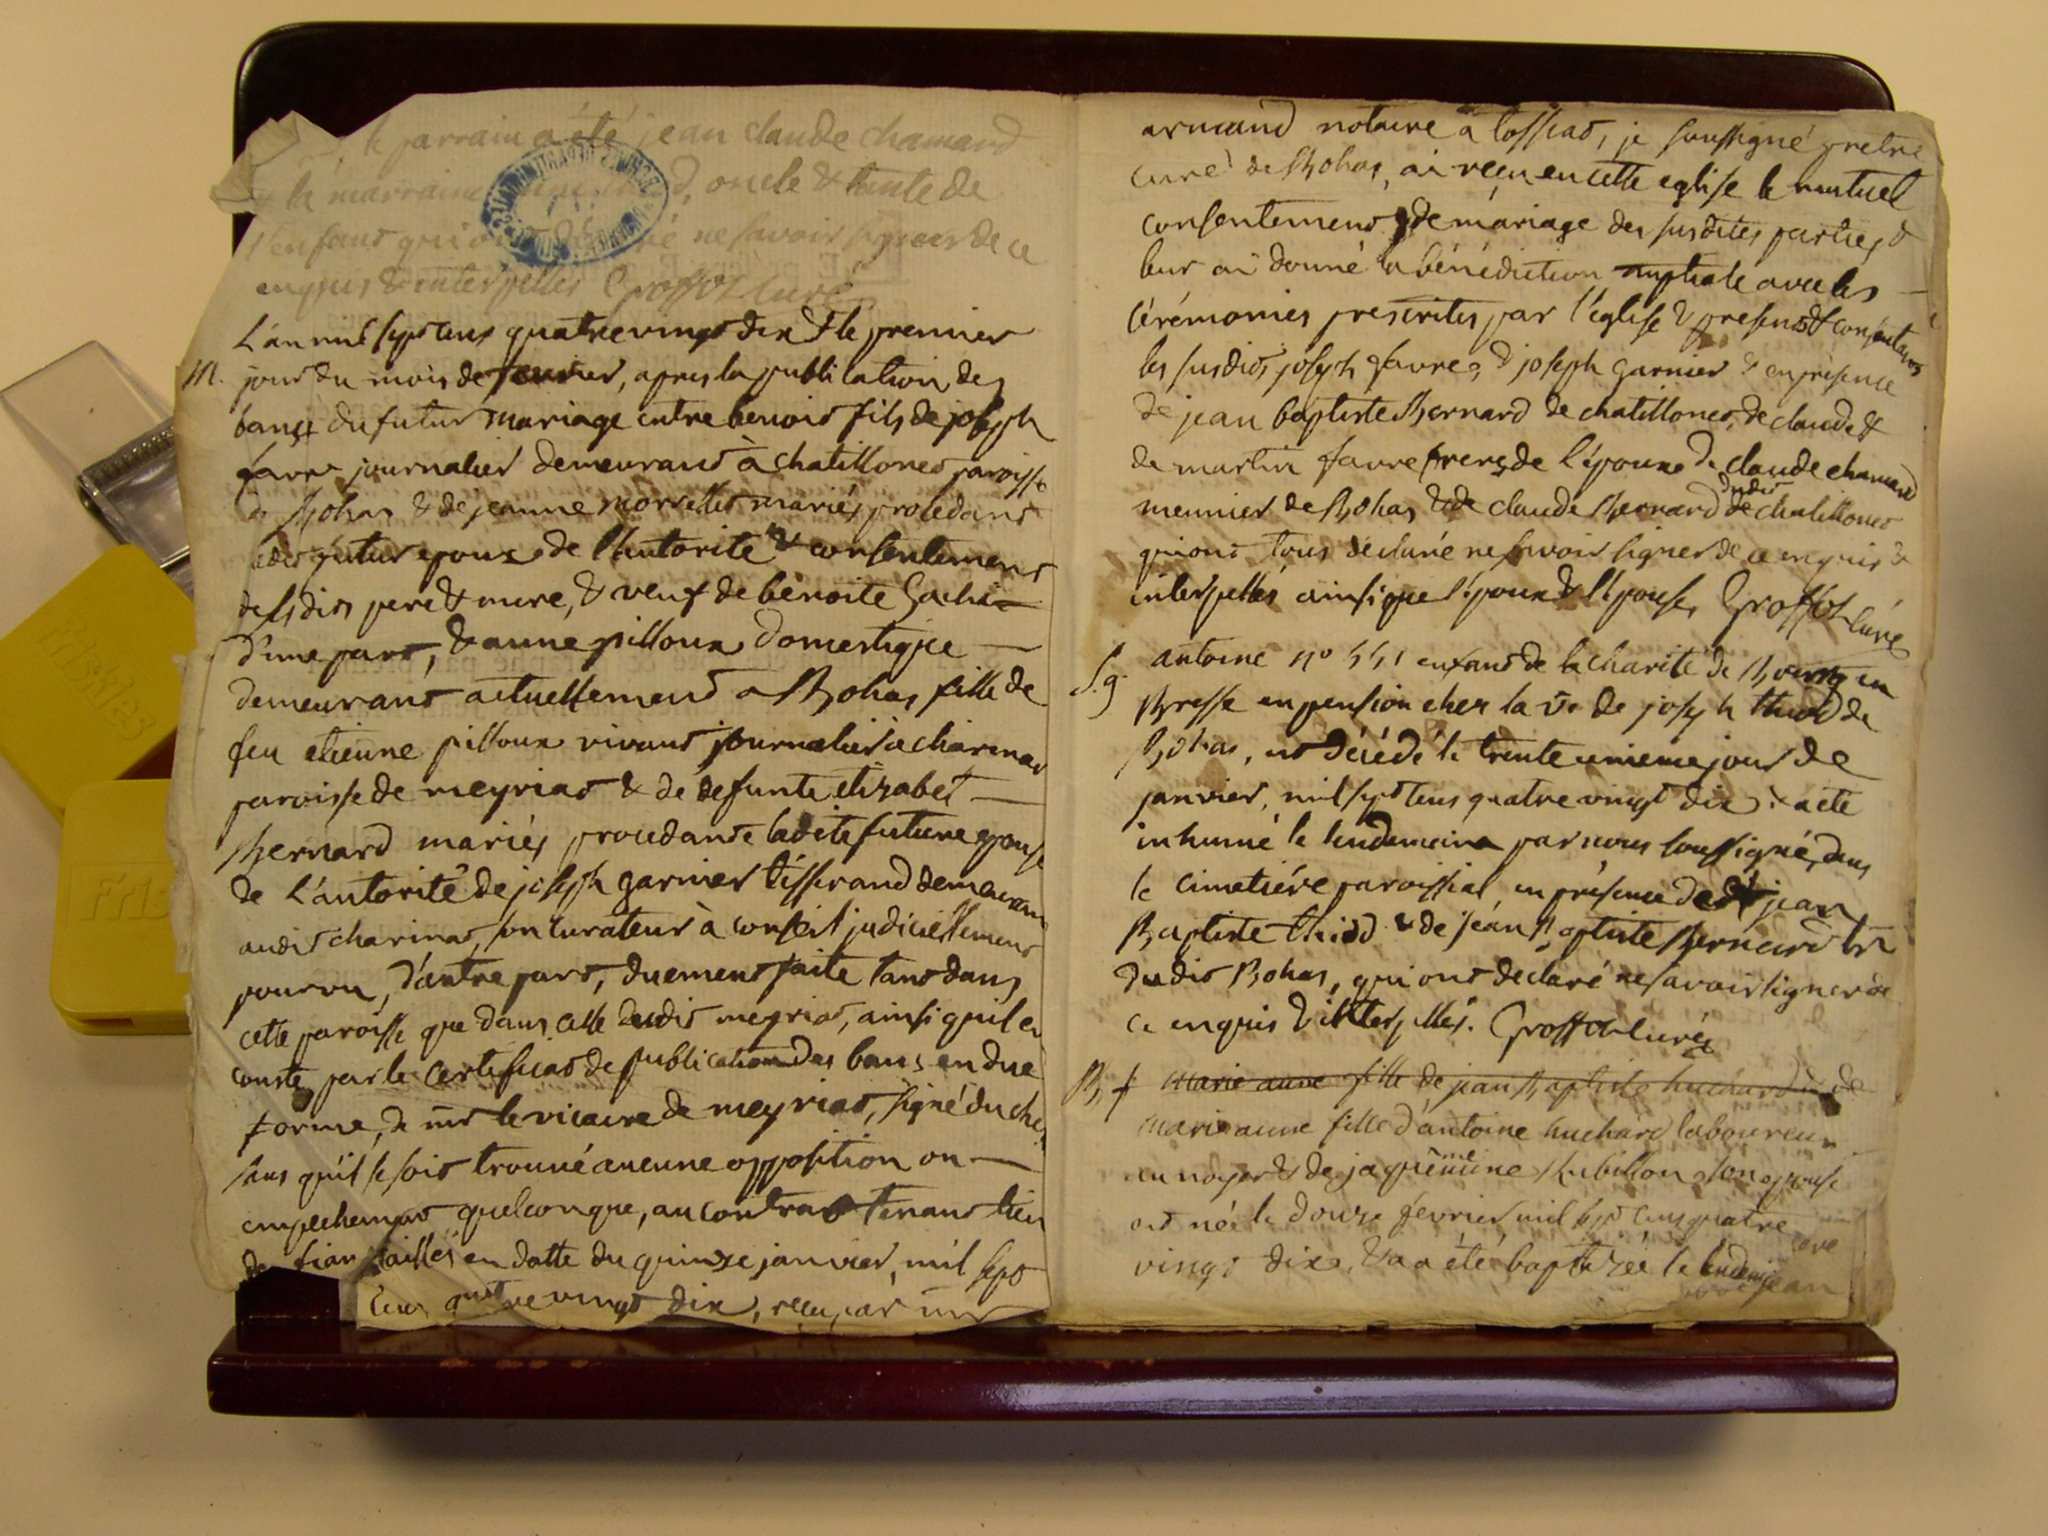 le parrain a été jean claude chamard
& la marraine oncle & tante de
l'enfant qui ont ne savoir signer de ce
enquis & interpellés Groffoz curé
L'an mil sept cens quatre vingt dix & le premier
M. jour du mois de fevrier, apres la publication des
bancs du futur mariage entre benoit fils de joseph
favre journalier demeurant à chatillonet paroisse
de Rohas & de jeanne morrellet mariés procedant
ledit futur epoux de l'autorité & consentement
desdits pere & mere, & veuf de benoite
d'une part, & anne pilloux domestique
demeurant actuellement a Bohas fille de
feu etienne pilloux vivant journalier à charinas
paroisse de meyriat & de defunte elizabet
Bernard mariés procedante ladite future epouse
de l'autorité de joseph garnier tisserand demeurant
audit charinas, son curateur à conseil judiciellement
pourvu, d'autre part, duement faite tant dans
cette paroisse que dans celle dudit meyriat, ainsi qu'il en
conste par le certificat de publication des bans en due
forme, de mr le vicaire de meyriat, signé
sans qu'il se soit trouvé aucune opposition ou
empechement quelconque, au contrat tenant lieu
de fiançailles en datte du quinze janvier, mil sept
cens quatre vingt dix, reçu par mr
armand notaire à tossiat, je soussigné pretre
curé de Bohas, ai reçu en cette eglise le mutuel
consentement de mariage des susdites parties &
leur ai donné la bénédiction nuptiale avec les
cérémonies prescrites par l'église & presents & consentants
les susdits joseph favre, & joseph garnier & en présence
de jean baptiste Bernard de chatillonet, de claude &
de martin favre freres de l'époux de claude chamard
meunier de Bohas & de claude Bernard dudit chatillonet
qui ont tous declaré ne savoir signer de ce enquis &
interpellés ainsi que l'epoux & l'epouse, Groffoz curé
S.g. antoine no 551 enfant de la charité de Bourg en
Bresse en pension chez la ve de joseph thiod de
Bohas, est décédé le trente unieme jour de
janvier, mil sept cens quatre vingt dix & a eté
inhumé le lendemain par nous soussigné, dans
le cimetiére paroissial en présence de jean
Baptiste thiod & de jean Baptiste Bernard
dudit Bohas, qui ont declaré ne savoir signer de
ce enquis & interpellés. Groffoz curé
B. f marie anne fille de jean Baptiste huchard
marie anne fille d'antoine huchard laboureur
au noyer & de jaquemine Rubillon son epouse
est née le douze février mil sept cens quatre
vingt dix, & a été baptizée le
jean